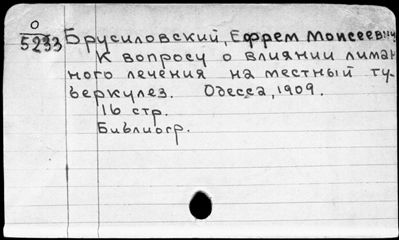 О
5233
Брусиловский, Ефрем Моисеевич
К вопросу о влиянии лиман
ного лечения на местный ту-
беркулез. Одесса, 1909.
16 стр.
Библиогр.